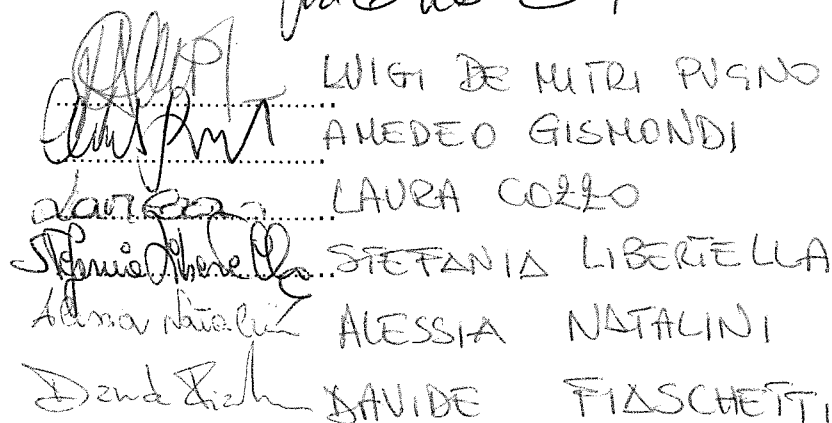 LUIGI DE MITRI PUGNO
AMEDEO GISMONDI
LAURA COZZO
Stefania Libertella STEFANIA LIBERTELLA
Alessia Natalini ALESSIA NATALINI
DAVIDE FIASCHETTI